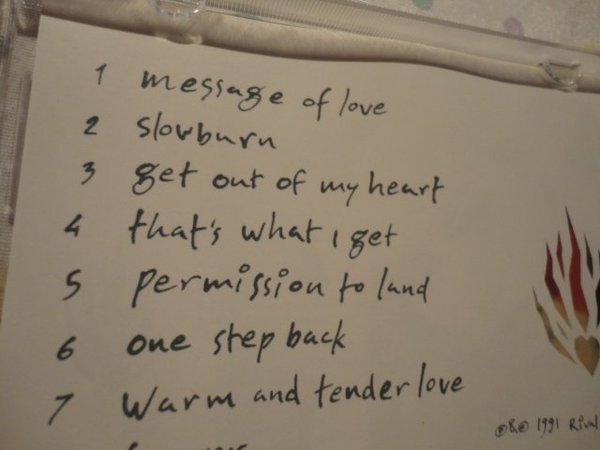 1 message of love
2 slowburn
3 get out of my heart
4 that's what I get
5 permission to land
6 one step back
7 Warm and tender love
℗&© 1991 Rival